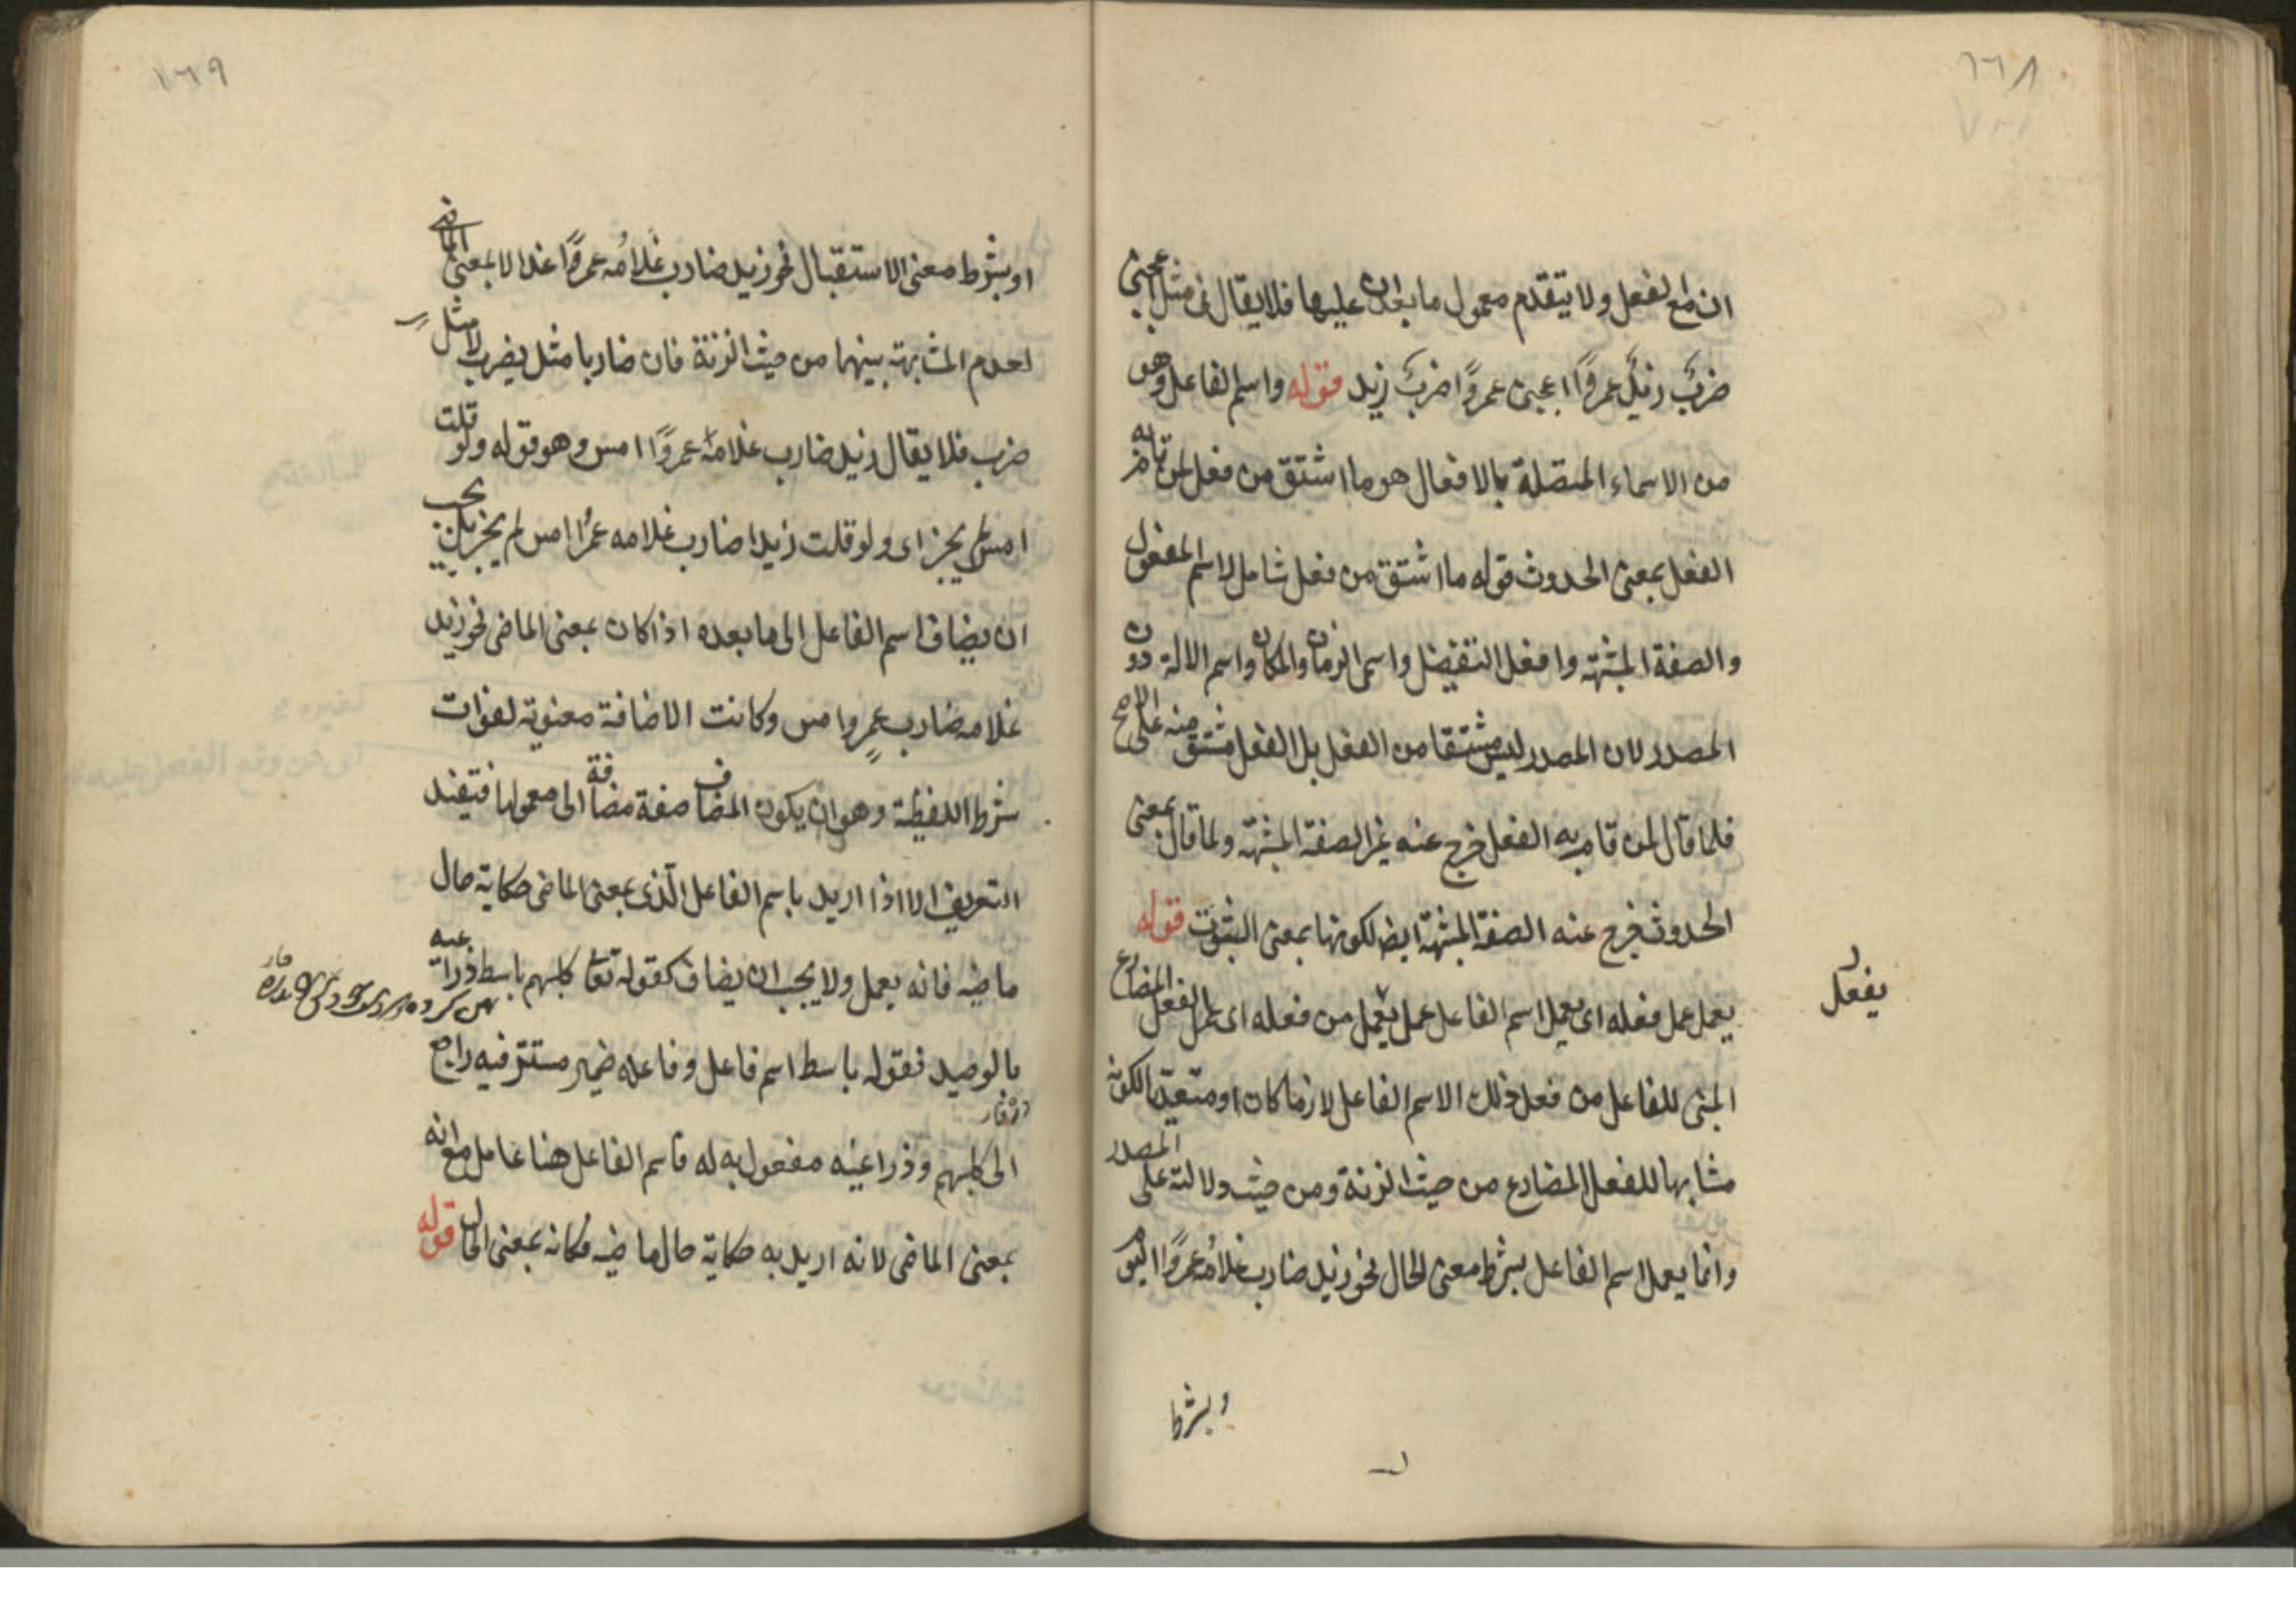 ١٦٨
ان مع الفعل ولا يتقدم معمول ما بعد ان عليها فلا يقال فى مثل اعجبنى
ضرب زيد عمروًا اعجبنى عمروًا ضرب زيد قوله واسم الفاعل وهو
من الاسماء المتصلة بالافعال هو ما اشتق من فعل لمن قام به
الفعل بمعنى الحدوث قوله ما اشتق من فعل شامل لاسم المفعول
والصفة المشبهة وافعل التفضيل واسمى الزمان والمكان واسم الالة دون
المصدر لان المصدر ليس مشتقا من الفعل بل الفعل مشتق منه على الاصح
فلما قال لمن قام به الفعل خرج عنه غير الصفة المشبهة ولما قال بمعنى
الحدوث خرج عنه الصفة المشبهة ايضا لكونها بمعنى الثبوت قوله
يعمل عمل فعله اى يعمل اسم الفاعل عمل يعمل من فعله اى عمل الفعل المضارع
يفعل
المبنى للفاعل من فعل ذلك الاسم الفاعل لازما كان او متعديا لكونه
مشابها للفعل المضارع من حيث الزنة ومن حيث دلالته على المصدر
وانما يعمل اسم الفاعل بشرط معنى الحال نحو زيد ضارب غلامُه عمروًا اليوم
وبشرط
١٦٩
او بشرط معنى الاستقبال نحو زيد ضارب غلامُه عمروًا غدا لا بمعنى الماضى
لعدم المشابهة بينهما من حيث الزنة فان ضاربا مثل يضرب لا مثل
ضرب فلا يقال زيد ضارب غلامه عمروًا امس وهو قوله ولو قلت
امس لم يجز اى ولو قلت زيدا ضارب غلامه عمرًا امس لم يجز بل يجب
ان يضاف اسم الفاعل الى ما بعده اذا كان بمعنى الماضى نحو زيد
غلامه ضارب عمرٍو امس وكانت الاضافة معنوية لفوات
شرط اللفظية وهو ان يكون المضاف صفة مضافة الى معمولها فتفيد
التعريف الا اذا اريد باسم الفاعل الّذى بمعنى الماضى حكاية حال
ماضية فانه يعمل ولا يجب ان يضاف كقوله تعا كلبهم باسط ذراعيه
بالوصيد فقوله باسط اسم فاعل وفاعله ضمير مستتر فيه راجع
در غار
الى كلبهم وذراعيه مفعول به له فاسم الفاعل هنا عامل مع انه
بمعنى الماضى لانه اريد به حكاية حال ماضية فكانه بمعنى الحال قوله